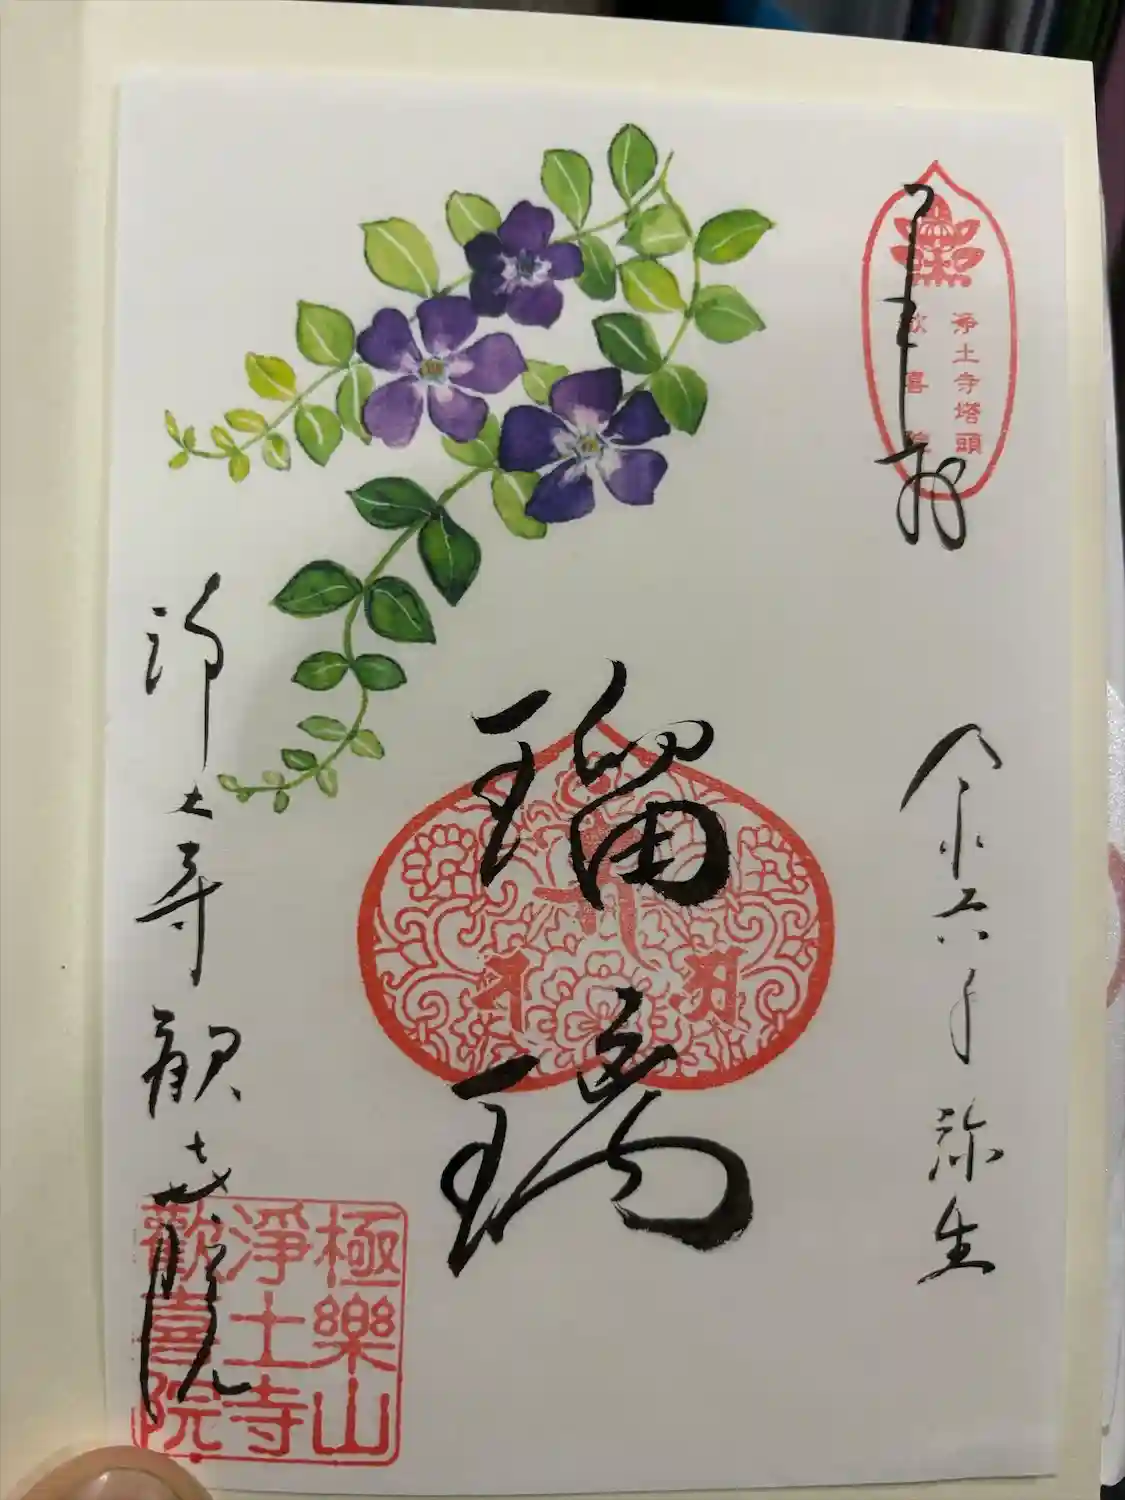 奉拝
浄土寺塔頭
歓喜院
令和六年 弥生
瑠璃
浄土寺 歓喜院
極樂山
淨土寺
歡喜院